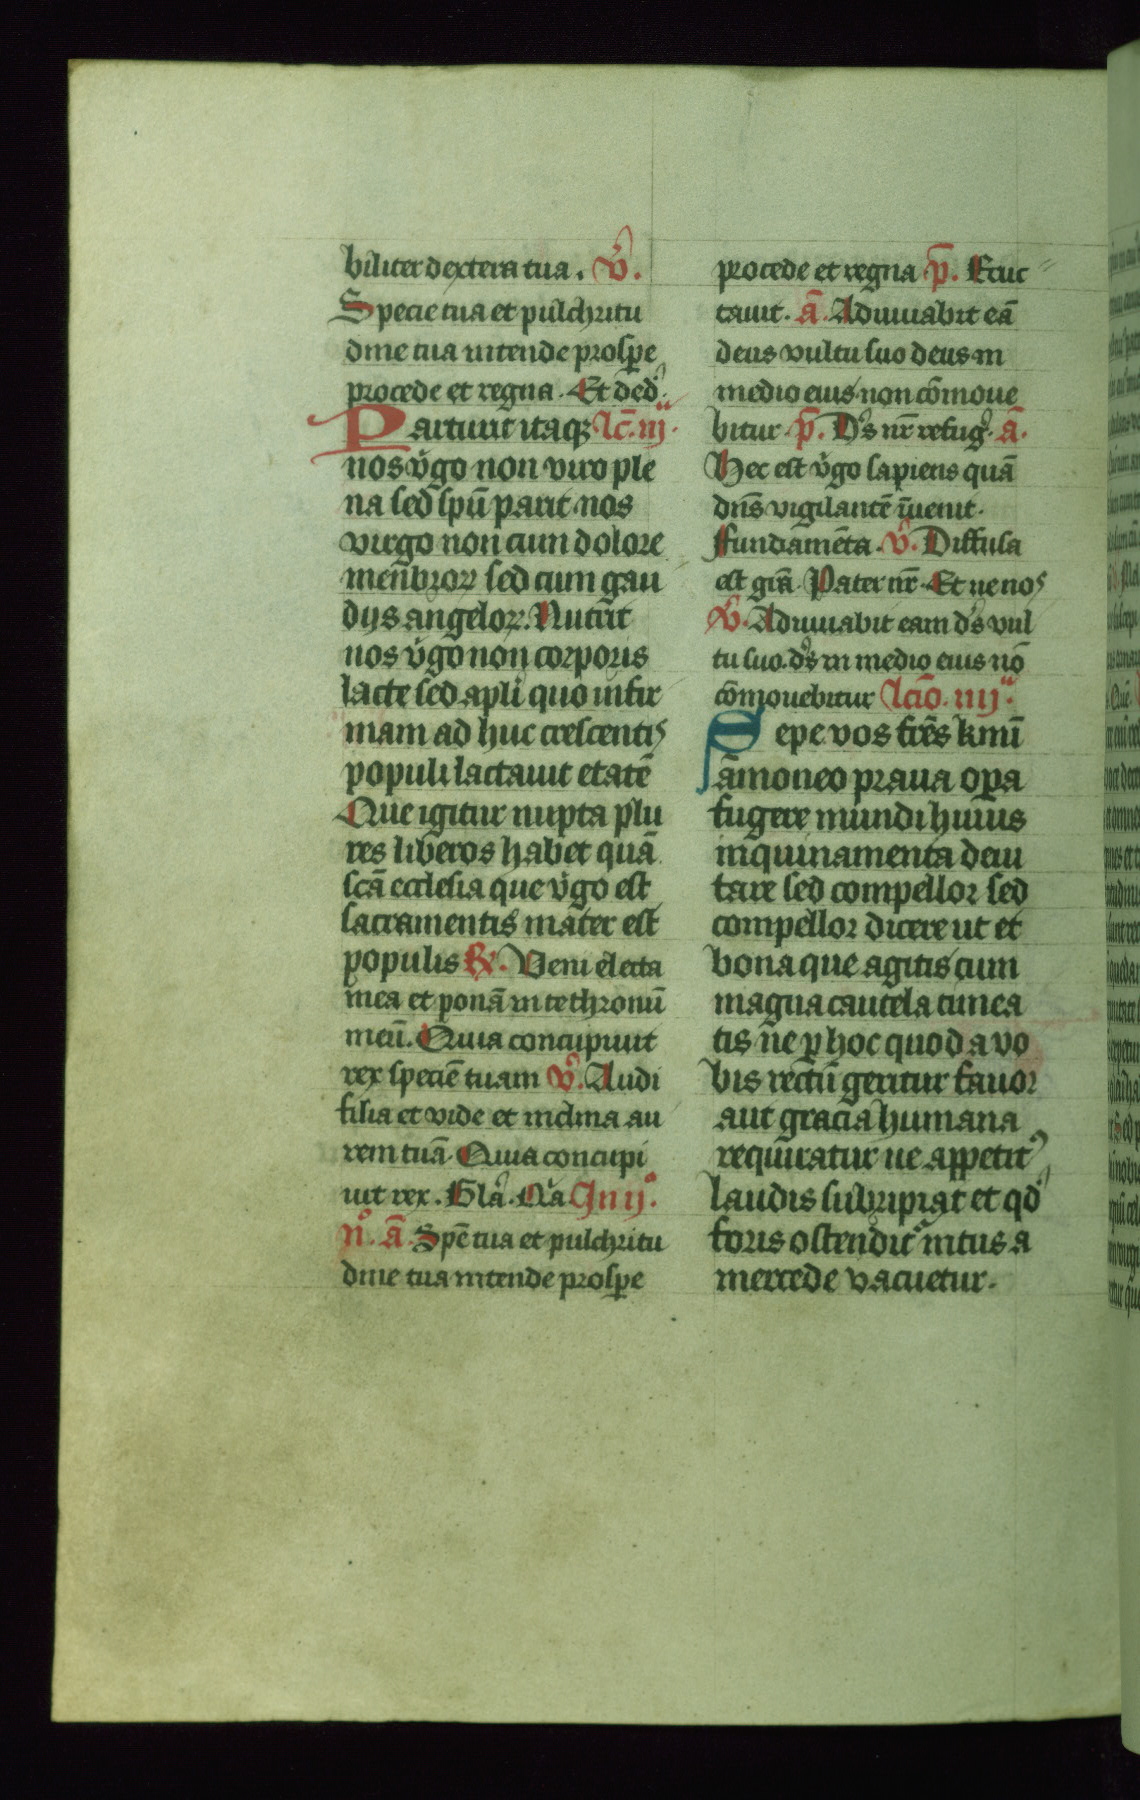 biliter dextera tua. v̄.
Specie tua et pulchritu
dine tua intende prosꝑe
procede et regna. Et ded'.
Parturit itaqꝫ lc̄. iij.
nos v̓go non viro ple
na sed spū parit nos
virgo non cum dolore
menbroꝝ sed cum gau
dijs angeloꝝ. Nutrit
nos v̓go non corporis
lacte sed apli quo infir
mam ad huc crescentis
populi lactauit etatē
Que igitur nupta plu
res liberos habet quā
scā ecclesia que v̓go est
sacramentis mater est
populis ℟. Veni electa
mea et ponā in te thronū
meū. Quia concupiuit
rex speciē tuam v̄. Audi
filia et vide et inclina au
rem tuā. Quia concupi
uit rex. Glā. Qa Jn ijº
nº. ā. Spē tua et pulchritu
dine tua intende prosꝑe
procede et regna p̄. Eruc
tauit. ā. Adiuuabit eā
deus vultu suo deus in
medio eius non cōmoue
bitur. p̄. D's nr̄ refug'. ā.
Hec est v̓go sapiens quā
dn̄s vigilantē īuenit.
Fundamēta. v̄. Diffusa
est grā. Pater nr̄. Et ne nos
v̄. Adiuuabit eam d's vul
tu suo. d's in medio eius nō
cōmouebitur lcīo. iiij.
Sepe vos fr̄es kmī
āmoneo praua oꝑa
fugere mundi huius
inquinamenta deui
tare sed compellor sed
compellor dicere ut et
bona que agitis cum
magna cautela timea
tis ne ꝑ hoc quod a vo
bis rectū geritur fauor
aut gracia humana
requiratur ne appetit9
laudis subripiat et qd'
foris ostendit' intus a
mercede vacuetur.